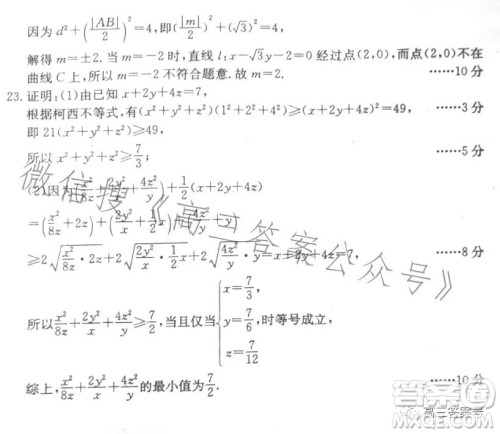 因为 d²+(|AB|/2)²=4,即(|m|/2)²+(√3)²=4,
解得 m=±2. 当 m=-2 时,直线 l:x-√3y-2=0 经过点(2,0),而点(2,0)不在
曲线 C 上,所以 m=-2 不符合题意. 故 m=2. ……10 分
23. 证明:(1)由已知 x+2y+4z=7,
根据柯西不等式,有(x²+y²+z²)(1²+2²+4²)≥(x+2y+4z)²=49, ……3 分
即 21(x²+y²+z²)≥49,
所以 x²+y²+z²≥7/3; ……5 分
(2)因为(x²/8z+2y²/x+4z²/y)+1/2(x+2y+4z)
=(x²/8z+2z)+(2y²/x+1/2x)+(4z²/y+y)
≥2√(x²/8z·2z)+2√(2y²/x·1/2x)+2√(4z²/y·y)=x+2y+4z=7, ……8 分
所以 x²/8z+2y²/x+4z²/y≥7/2,当且仅当{x=7/3, y=7/6, z=7/12 时等号成立,
综上,x²/8z+2y²/x+4z²/y 的最小值为7/2. ……10 分
微信搜《高三答案公众号》
高三答案号